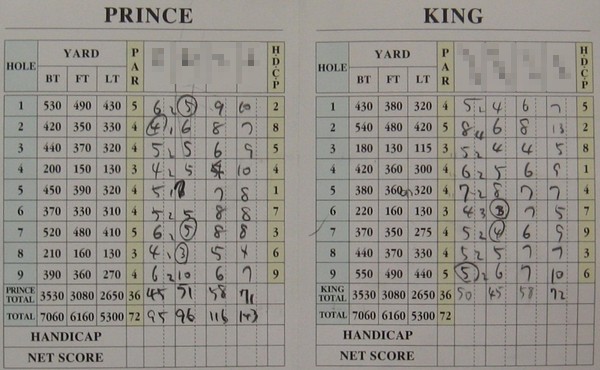 PRINCE
HOLE YARD PAR HDCP
BT FT LT
1 530 490 430 5 6 2 5 9 10 2
2 420 350 330 4 4 1 6 8 7 8
3 440 370 320 4 5 2 5 6 9 5
4 200 150 130 3 4 2 5 10 4
5 450 390 320 4 5 1 7 7 8 1
6 370 330 310 4 5 2 5 8 8 7
7 520 480 410 5 6 5 8 8 3
8 210 160 130 3 4 1 3 5 4 6
9 390 360 270 4 6 2 10 6 7 9
PRINCE TOTAL 3530 3080 2650 36 45 51 58 71
TOTAL 7060 6160 5300 72 95 96 116 143
HANDICAP
NET SCORE
KING
HOLE YARD PAR HDCP
BT FT LT
1 430 380 320 4 5 2 4 6 7 5
2 540 480 420 5 8 4 6 8 13 2
3 180 130 115 3 5 2 4 4 5 8
4 420 360 300 4 6 2 5 6 9 1
5 380 360 320 4 7 2 8 7 7 4
6 220 160 130 3 4 3 3 7 5 7
7 370 350 275 4 5 2 4 6 9 9
8 440 370 330 4 5 2 5 7 7 3
9 550 490 440 5 5 2 6 7 10 6
KING TOTAL 3530 3080 2650 36 50 45 58 72
TOTAL 7060 6160 5300 72
HANDICAP
NET SCORE